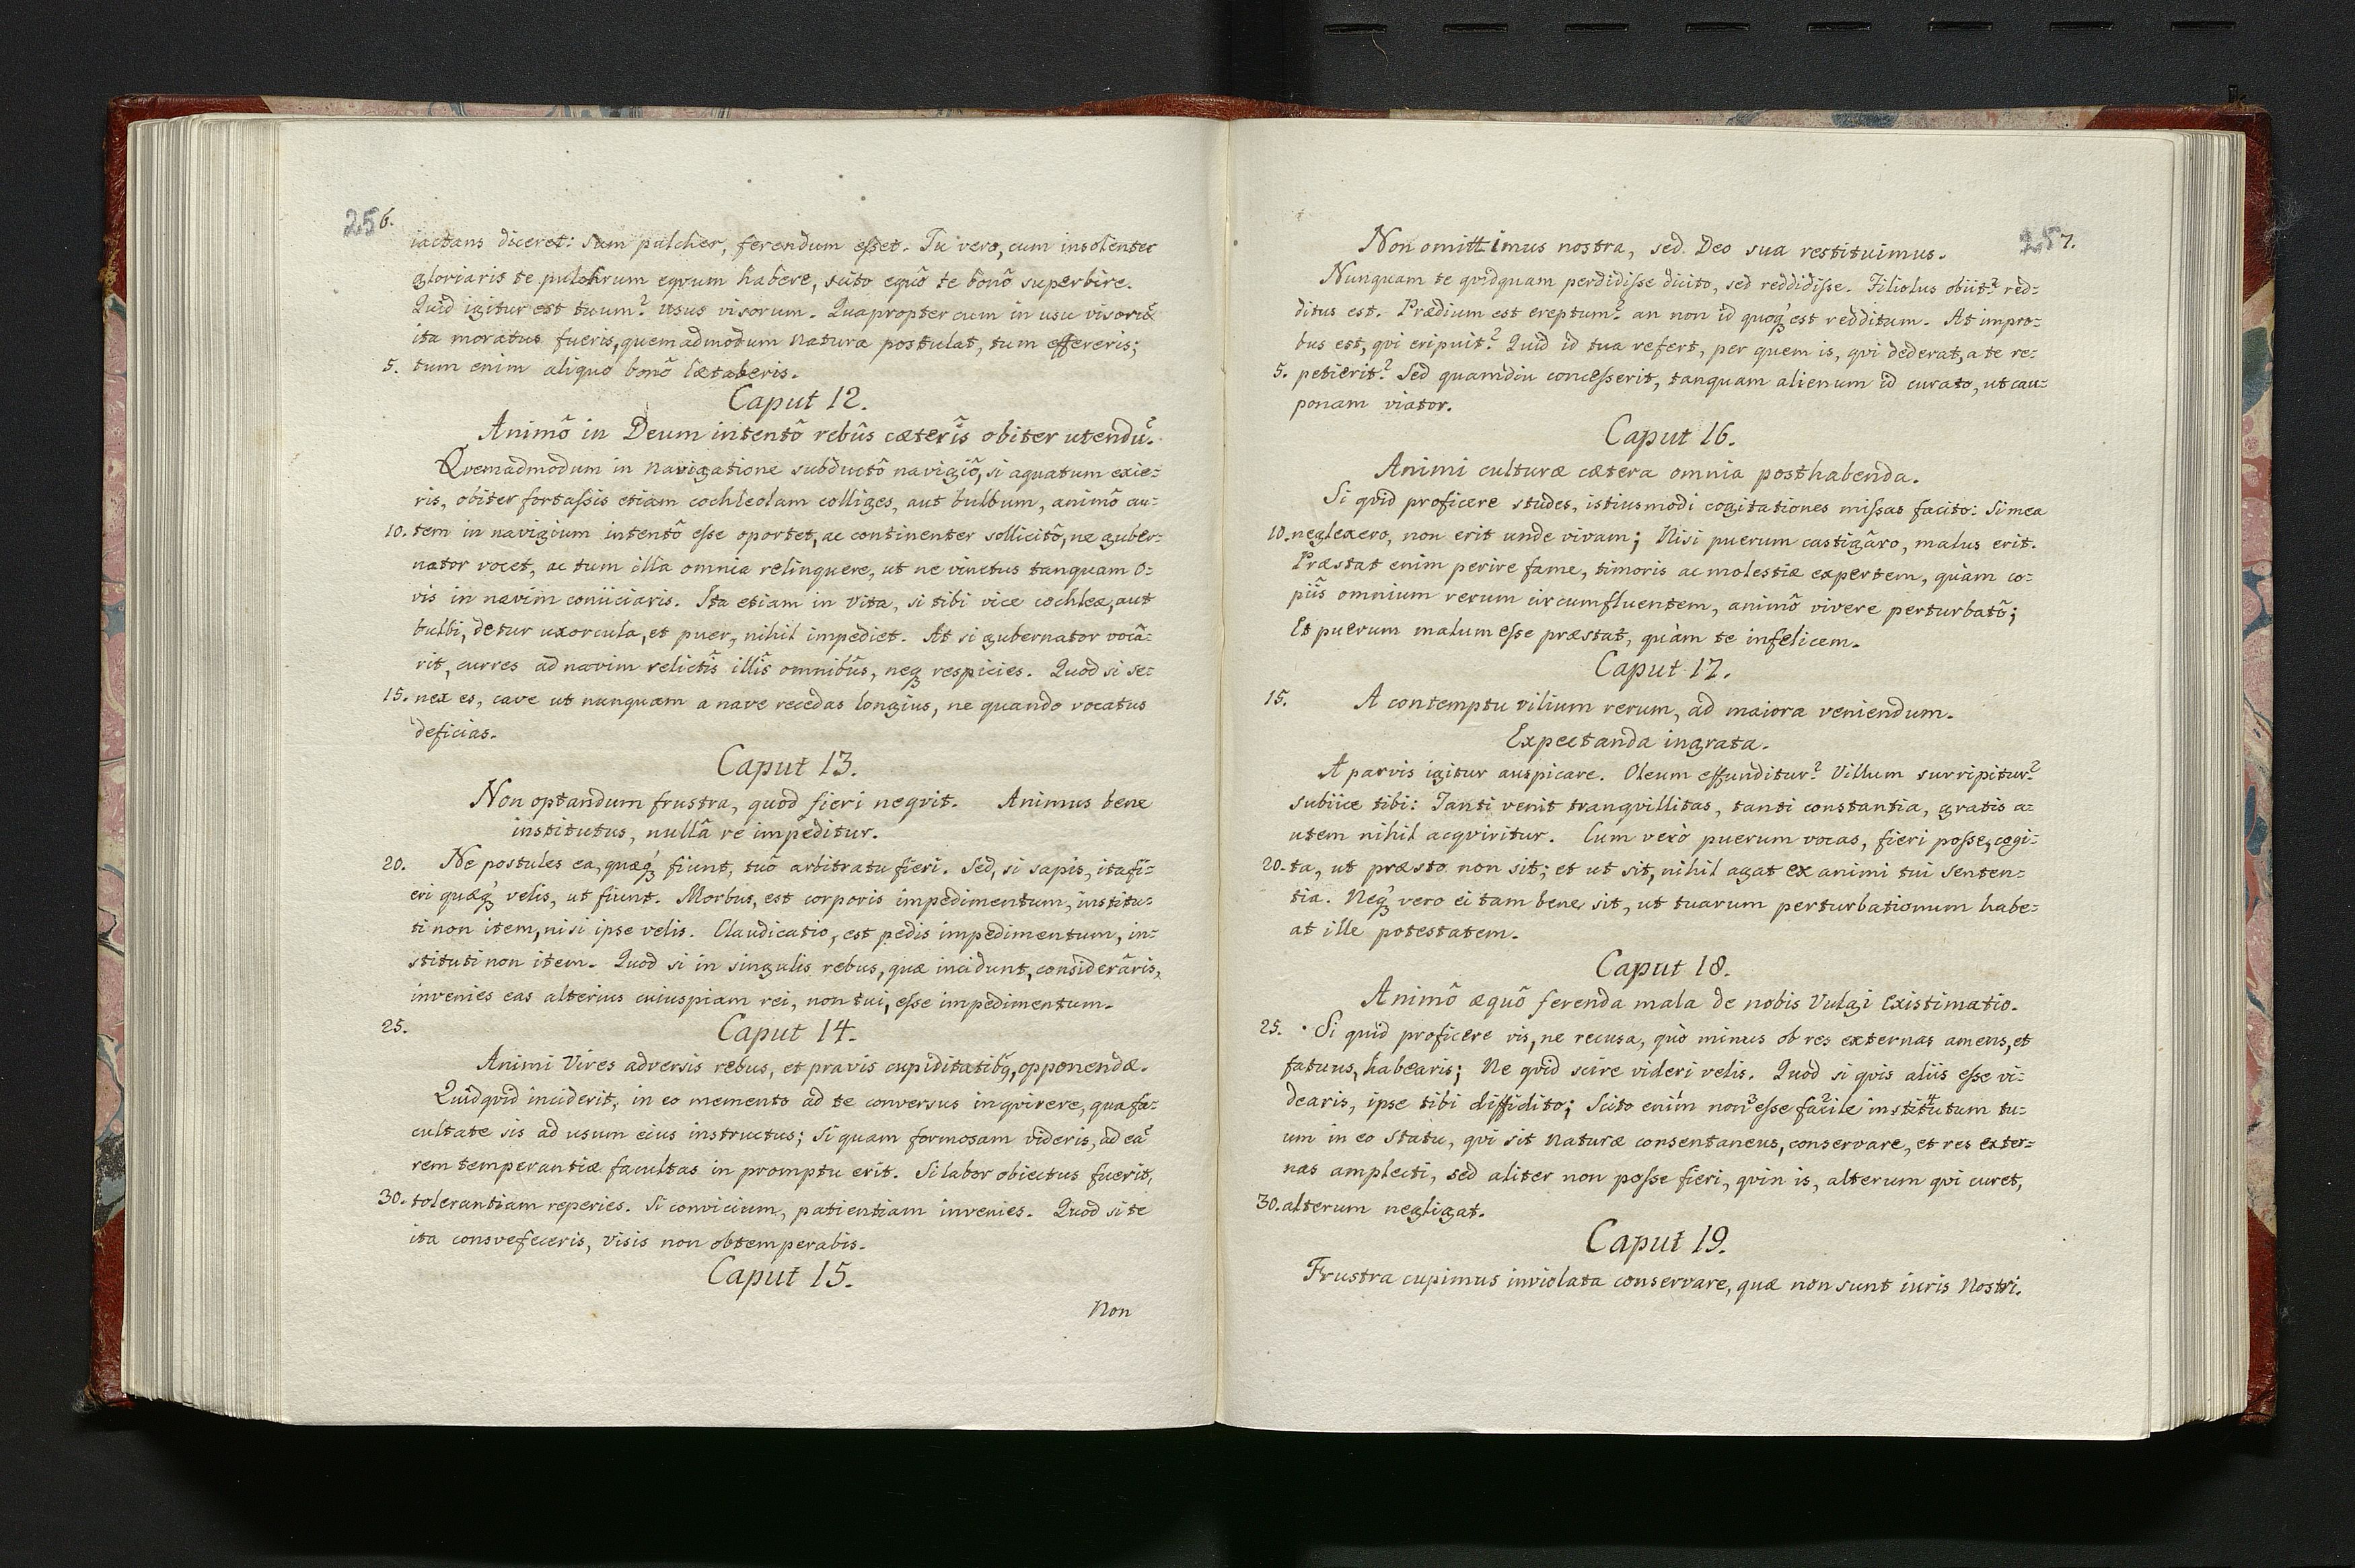 256.
iactans diceret: sum pulcher, ferendum eſset. Tu vero, cum insolenter
gloriaris te pulchrum eqvum habere, scito eqvô te bonô superbire.
Quid igitur est tuum? usus visorum. Quapropter cum in usu visorũ
ita moratus fueris, quemadmodum natura postulat, tum effereris;
5. tum enim aliquo bonô lætaberis.
Caput 12.
Animô in Deum intentô rebûs cæterîs obiter utendũ.
Qvemadmodum in navigatione subductô navigiô, si aquatum exie=
ris, obiter fortaſsis etiam cochleolam colliges, aut bulbum, animô au=
10. tem in navigium intentô eſse oportet, ac continenter sollicitô, ne guber=
nator vocet, ac tum illa omnia relinquere, ut ne vinctus tanquam o=
vis in navim coniiciaris. Ita etiam in vita, si tibi vice cochleæ, aut
bulbi, detur uxorcula, et puer, nihil impediet. At si gubernator vocâ=
rit, curres ad navim relictîs illîs omnibûs, neqꝫ respicies. Quod si se=
15. nex es, cave ut nunquam a nave recedas longius, ne quando vocatus
deficias.
Caput 13.
Non optandum frustra, quod fieri neqvit. Animus bene
institutus, nullâ re impeditur.
20. Ne postules ea, quæqꝫ fiunt, tuô arbitratu fieri. Sed, si sapis, ita fi=
eri quæqꝫ velis, ut fiunt. Morbus, est corporis impedimentum, institu=
ti non item, nisi ipse velis. Claudicatio, est pedis impedimentum, in=
stituti non item. Quod si in singulis rebus, quæ incidunt, considerâris,
invenies eas alterius cuiuspiam rei, non tui, eſse impedimentum.
25. Caput 14.
Animi Vires adversis rebus, et pravis cupiditatibꝫ, opponendæ.
Quidqvid inciderit, in eo memento ad te conversus inqvirere, qua fa=
cultate sis ad usum eius instructus; Si quam formosam videris, ad eã
rem temperantiæ facultas in promptu erit. Si labor obiectus fuerit,
30. tolerantiam reperies. Si convicium, patientiam invenies. Quod si te
ita consvefeceris, visis non obtemperabis.
Caput 15.
Non
257.
Non omittimus nostra, sed Deo sua restituimus.
Nunquam te qvidquam perdidiſse dicito, sed reddidiſse. Filiolus obiit? red=
ditus est. Prædium est ereptum? an non id quoqꝫ est redditum. At impro=
bus est, qvi eripuit? Quid id tua refert, per quem is, qvi dederat, a te re=
5. petierit? Sed quamdiu conceſserit, tanquam alienum id curato, ut cau=
ponam viator.
Caput 16.
Animi culturæ cætera omnia posthabenda.
Si qvid proficere studes, istiusmodi cogitationes miſsas facito: Si mea
10. neglexero, non erit unde vivam; Nisi puerum castigâro, malus erit.
Præstat enim perire fame, timoris ac molestiæ expertem, quàm co=
piîs omnium rerum circumfluentem, animô vivere perturbatô;
Et puerum malum eſse præstat, quàm te infelicem.
Caput 17.
15. A contemptu vilium rerum, ad maiora veniendum.
Expectanda ingrata.
A parvis igitur auspicare. Oleum effunditur? Villum surripitur?
subiice tibi: Tanti venit tranqvillitas, tanti constantia, gratis a=
utem nihil acqviritur. Cum verò puerum vocas, fieri poſse, cogi=
20. ta, ut præsto non sit; et ut sit, nihil agat ex animi tui senten=
tia. Neqꝫ vero ei tam bene sit, ut tuarum perturbationum habe=
at ille potestatem.
Caput 18.
Animô æquô ferenda mala de nobis Vulgi existimatio.
25. Si quid proficere vis, ne recusa, quò minus ob res externas amens, et
fatuus, habearis; Ne qvid scire videri velis. Quod si qvis aliis eſse vi=
dearis, ipse tibi diffidito; Scito enim¹ non³ eſse facile² institutum⁴ tu=
um in eo statu, qvi sit naturæ consentaneus, conservare, et res exter=
nas amplecti, sed aliter non poſse fieri, qvin is, alterum qvi curet,
30. alterum negligat.
Caput 19.
Frustra cupimus inviolata conservare, quæ non sunt iuris Nostri.